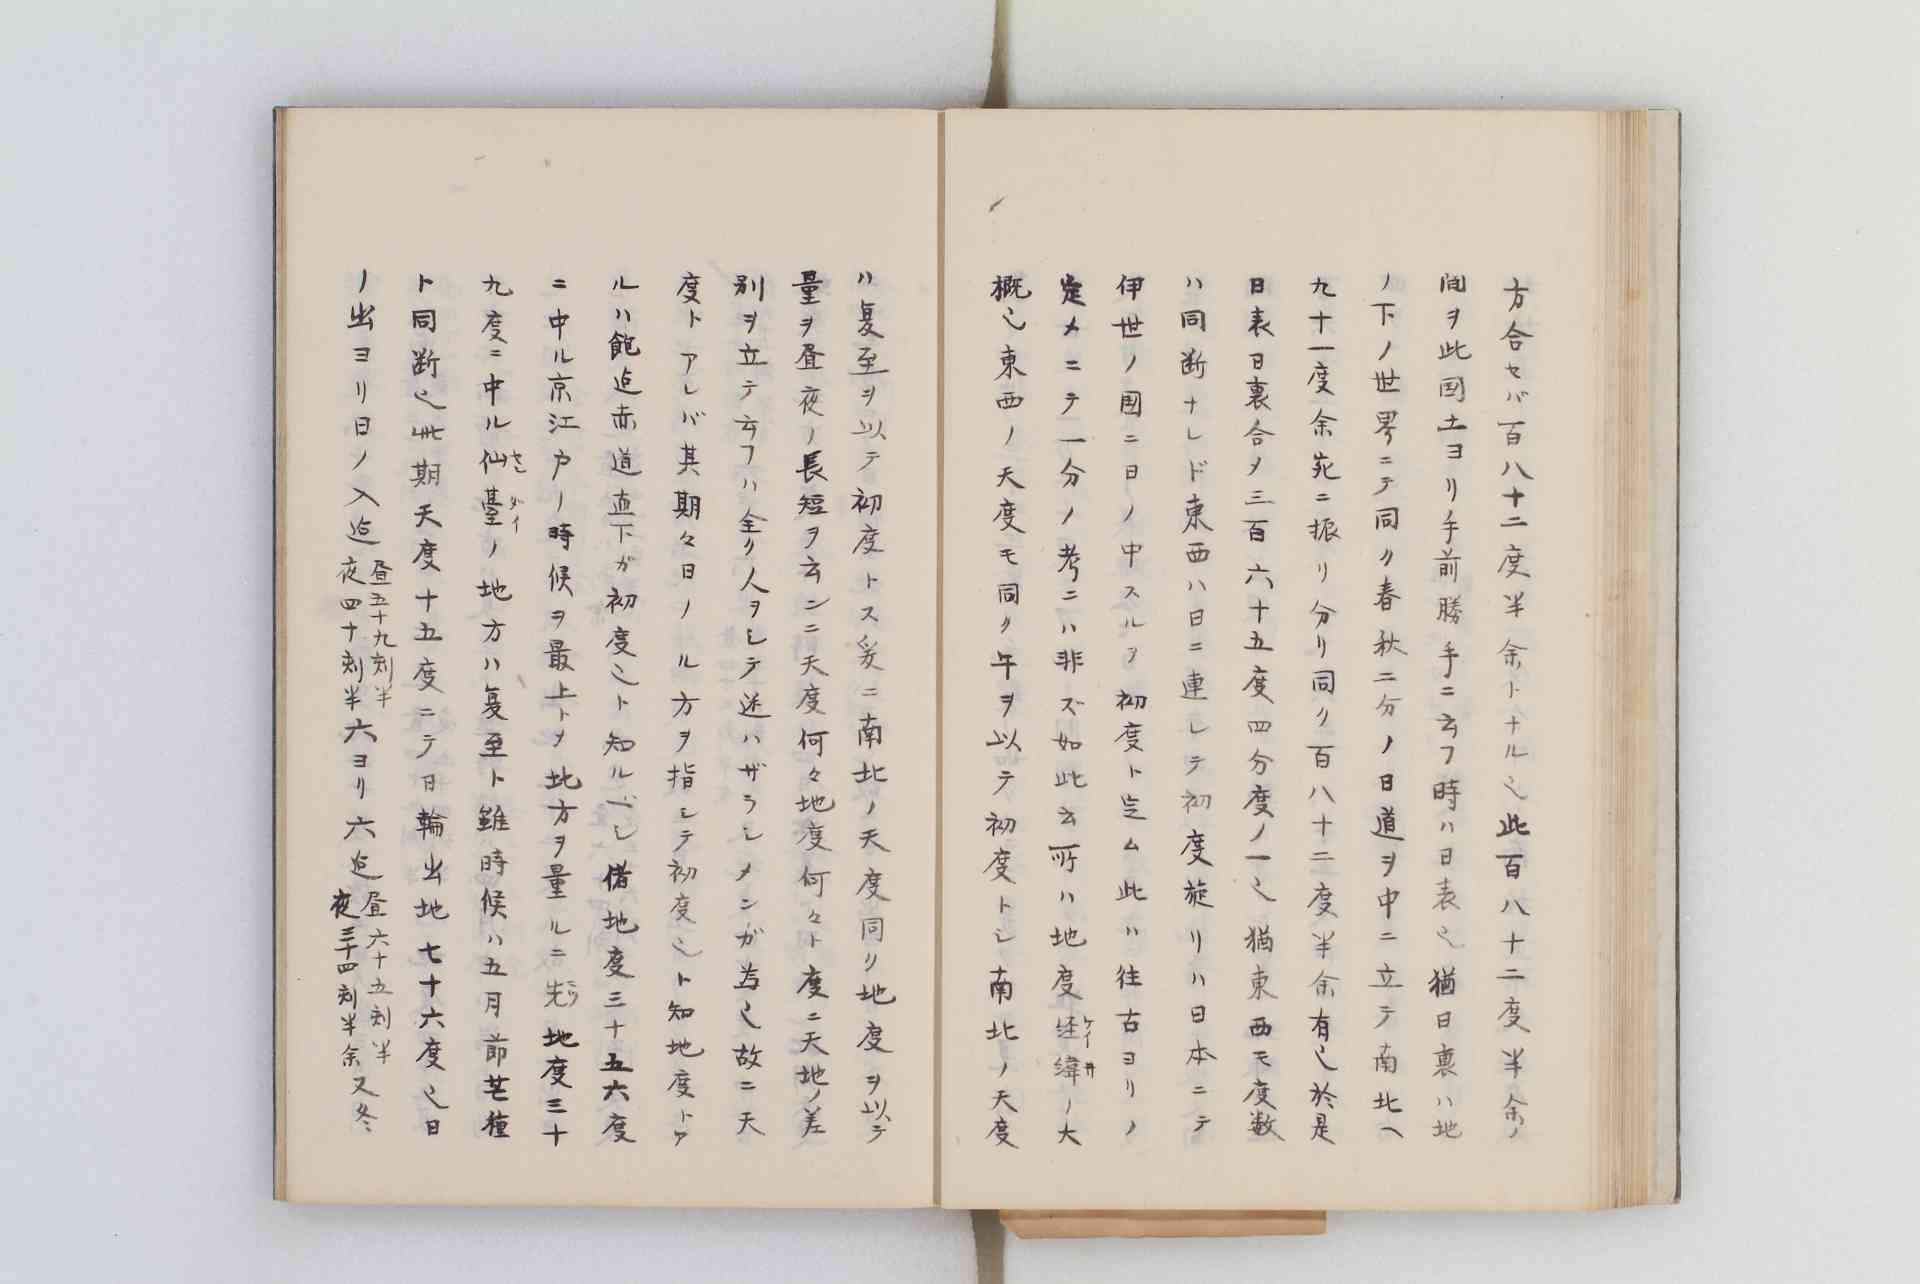 方合セバ百八十二度半余トナル也此百八十二度半余ノ
間ヲ此国土ヨリ手前勝手ニ云フ時ハ日表也猶日裏ハ地
ノ下ノ世界ニテ同ク春秋二分ノ日道ヲ中ニ立テ南北ヘ
九十一度余宛ニ振リ分リ同ク百八十二度半余有也於是
日表日裏合メ三百六十五度四分度ノ一也猶東西モ度数
ハ同断ナレド東西ハ日ニ連レテ初度旋リハ日本ニテ
伊世ノ国ニ日ノ中スルヲ初度ト定ム此ハ往古ヨリノ
定メニテ一分ノ考ニハ非ズ如此云所ハ地度経緯ケイ井ノ大
概也東西ノ天度モ同ク午ヲ以テ初度トシ南北ノ天度
ハ夏至ヲ以テ初度トス爰ニ南北ノ天度同リ地度ヲ以テ
量ヲ昼夜ノ長短ヲ云ンニ天度何々地度何々ト度ニ天地ノ差
別ヲ立テ云フハ全ク人ヲシテ迷ハザラシメンガ為也故ニ天
度トアレバ其期々日ノル方ヲ指シテ初度也ト知地度トア
ルハ飽迠赤道直下ガ初度也ト知ルベシ偖地度三十五六度
ニ中ル京江戸ノ時候ヲ最上トメ北方ヲ量ルニ先地度三十
九度ニ中ル仙臺センダイノ地方ハ夏至ト雖時候ハ五月節芒種
ト同断也此期天度十五度ニテ日輪出地七十六度也日
ノ出ヨリ日ノ入迠昼五十九刻半夜四十刻半六ヨリ六迠昼六十五刻半夜三十四刻半余又冬